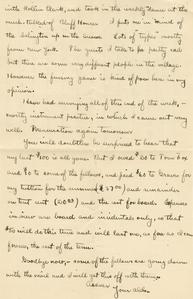 with Hollis Clark, and took in the weekly dance at the
much-talked-of Bluff House. I put me in mind of
the Islington up on the Sound. Lots of "types" mostly
from New York. The guests I talk to are pretty sad
but there are some very different people in the village.
However the pursuing game is kind of poor here in my
opinion.
I have had surveying all of this end of the week, —
mostly instrument practice, in which I came out very
well. Examination again tomorrow.
You will doubtless be surprised to hear that
my last $100 is all gone. But I owed $20 to Tom Cox
and $ to some of the fellows, and paid to
my tuition for the summer (27.00) and remainder
on tent rent (20.00) and the rest for board. Expenses
in view are board and incidentals only, so that
will do this time and will last me, as far as I can
foresee, the rest of the term.
Goodbye now, — some of the fellows are going down
with the mail and I will get this off with them.
Your aide,